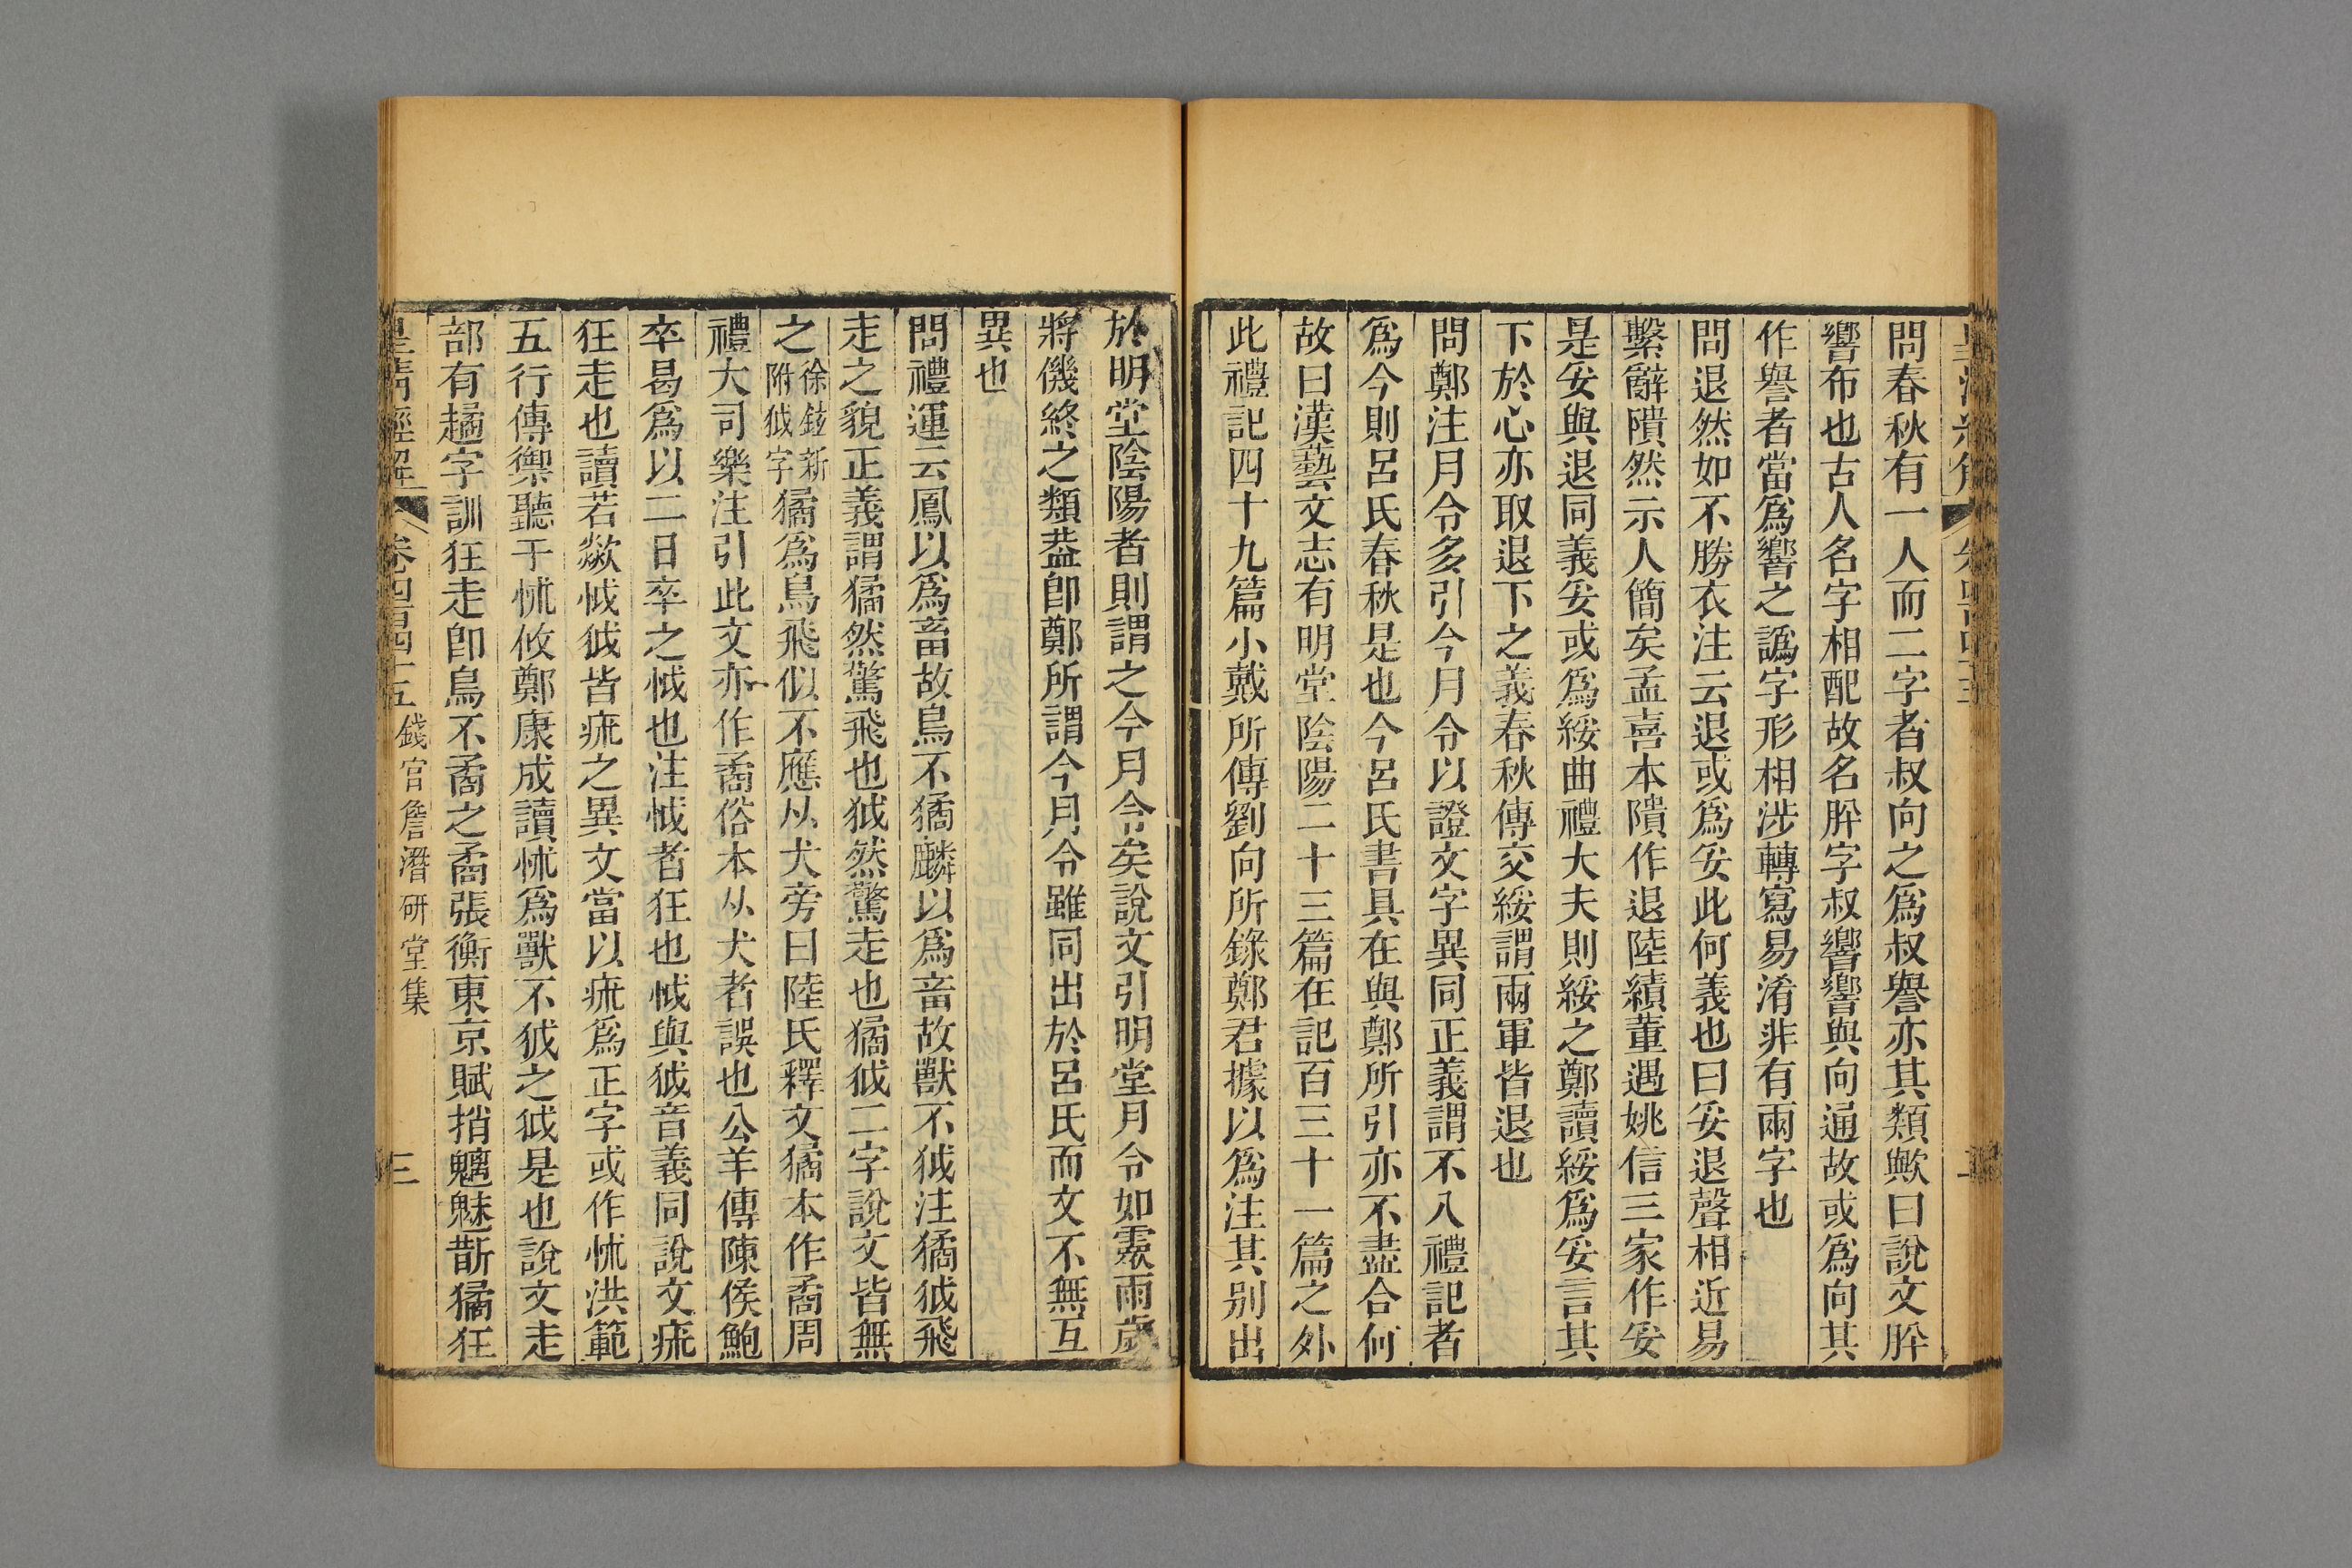 問春秋有一人而二字者叔向之爲叔譽亦其類歟曰說文肸
響布也古人名字相配故名肸字叔響響與向通故或爲向其
作譽者當爲響之譌字形相涉轉寫易淆非有兩字也
問退然如不勝衣注云退或爲妥此何義也曰妥退聲相近易
繫辭隤然示人簡矣孟喜本隤作退陸績董遇姚信三家作妥
是妥與退同義妥或爲綏曲禮大夫則綏之鄭讀綏爲妥言其
下於心亦取退下之義春秋傳交綏謂兩軍皆退也
問鄭注月令多引今月令以證文字異同正義謂不入禮記者
爲今則呂氏春秋是也今呂氏書具在與鄭所引亦不盡合何
故曰漢藝文志有明堂陰陽二十三篇在記百三十一篇之外
此禮記四十九篇小戴所傳劉向所錄鄭君據以爲注其別出
於明堂陰陽者則謂之今月令矣說文引明堂月令如霎雨歲
將僟終之類葢卽鄭所謂今月令雖同出於呂氏而文不無互
異也
問禮運云鳳以爲畜故鳥不獝麟以爲畜故獸不狘注獝狘飛
走之貌正義謂獝然驚飛也狘然驚走也獝狘二字說文皆無
之徐鉉新附狘字獝爲鳥飛似不應从犬旁曰陸氏釋文獝本作矞周
禮大司樂注引此文亦作矞俗本从犬者誤也公羊傳陳侯鮑
卒曷爲以二日卒之怴也注怴者狂也怴與狘音義同說文㾜
狂走也讀若欻怴狘皆㾜之異文當以㾜爲正字或作怵洪範
五行傳禦聽于怵攸鄭康成讀怵爲獸不狘之狘是也說文走
部有趫字訓狂走卽鳥不矞之矞張衡東京賦捎魑魅斮獝狂
皇清經解 卷四百四十五 錢官詹潛研堂集 三